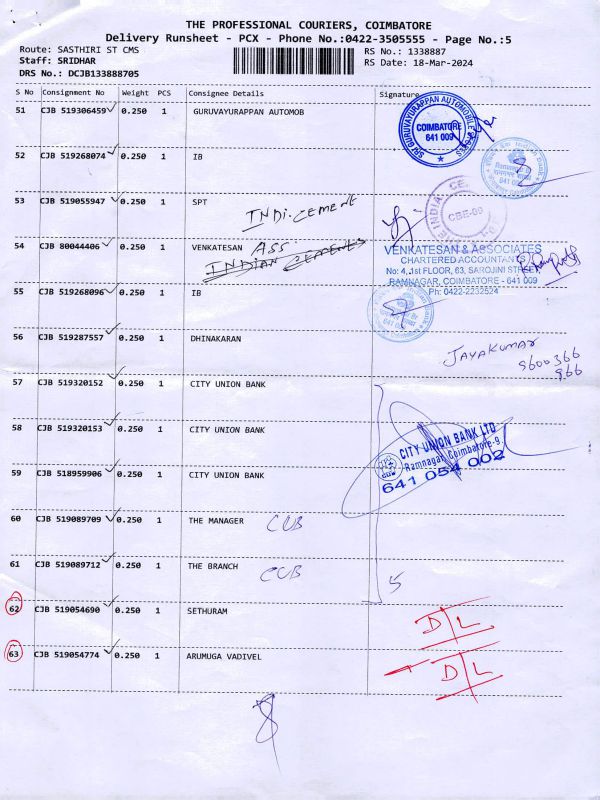 THE PROFESSIONAL COURIERS, COIMBATORE
Delivery Runsheet - PCX - Phone No.:0422-3505555 - Page No.:5
Route: SASTHIRI ST CMS RS No.: 1338887
Staff: SRIDHAR RS Date: 18-Mar-2024
DRS No.: DCJB133888705
S No Consignment No Weight PCS Consignee Details Signature
51 CJB 519306459 0.250 1 GURUVAYURAPPAN AUTOMOB
COIMBATORE
641 009
52 CJB 519268074 0.250 1 IB
53 CJB 519055947 0.250 1 SPT
INDI.CEMENT
CBE-09
54 CJB 80044406 0.250 1 VENKATESAN ASS
INDIAN CEMENTS
VENKATESAN & ASSOCIATES
CHARTERED ACCOUNTANTS
No: 4, 1st FLOOR, 63, SAROJINI STREET
RAMNAGAR, COIMBATORE - 641 009
Ph: 0422-2232524
55 CJB 519268096 0.250 1 IB
56 CJB 519287557 0.250 1 DHINAKARAN
JAYAKUMAR
9600366
966
57 CJB 519320152 0.250 1 CITY UNION BANK
58 CJB 519320153 0.250 1 CITY UNION BANK
CITY UNION BANK LTD
Ramnagar, Coimbatore-9.
641 054 002
59 CJB 518959906 0.250 1 CITY UNION BANK
60 CJB 519089709 0.250 1 THE MANAGER CUB
61 CJB 519089712 0.250 1 THE BRANCH CUB
5
62 CJB 519054690 0.250 1 SETHURAM D/L
63 CJB 519054774 0.250 1 ARUMUGA VADIVEL D/L